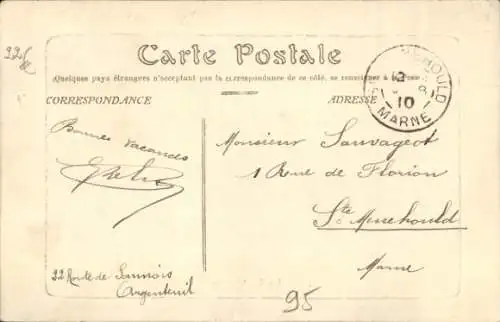 Carte Postale
Quelques pays étrangers n'acceptant pas la correspondance de ce côté, se renseigner à la Poste
CORRESPONDANCE
ADRESSE
MENEHOULD
2
10
MARNE
Bonnes vacances
Monsieur Sauvageot
1 Rue de Florion
Ste Menehould
Marne
22 Route de Sannois
Argenteuil
95